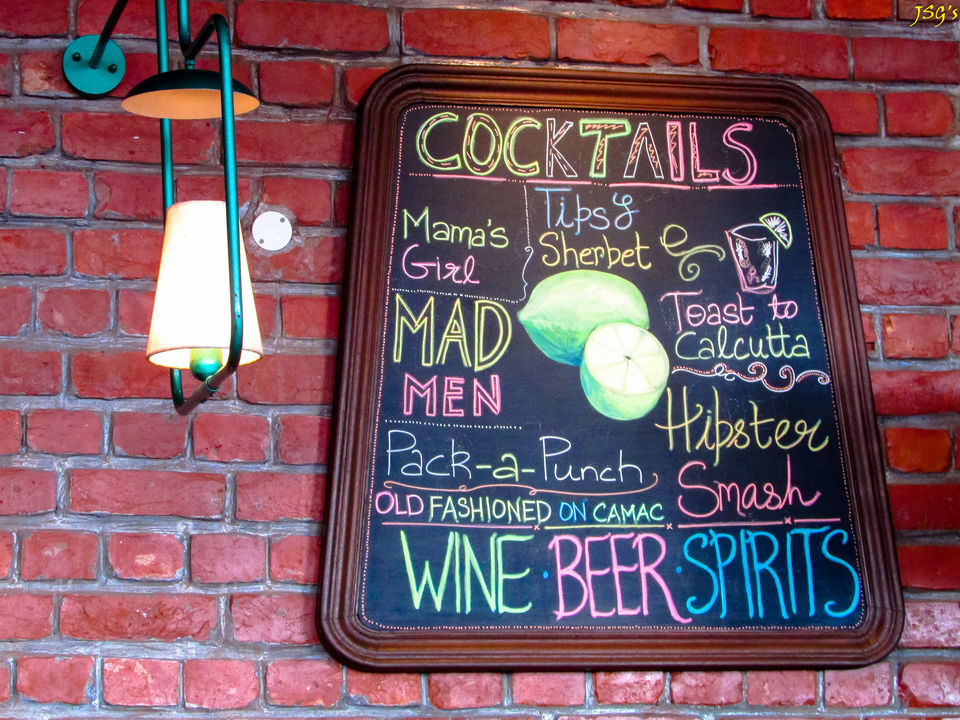 JSG's
COCKTAILS
Mama's
Girl
Tipsy
Sherbet
MAD
MEN
Toast to
Calcutta
Hipster
Smash
Pack-a-Punch
OLD FASHIONED ON CAMAC
WINE · BEER · SPIRITS